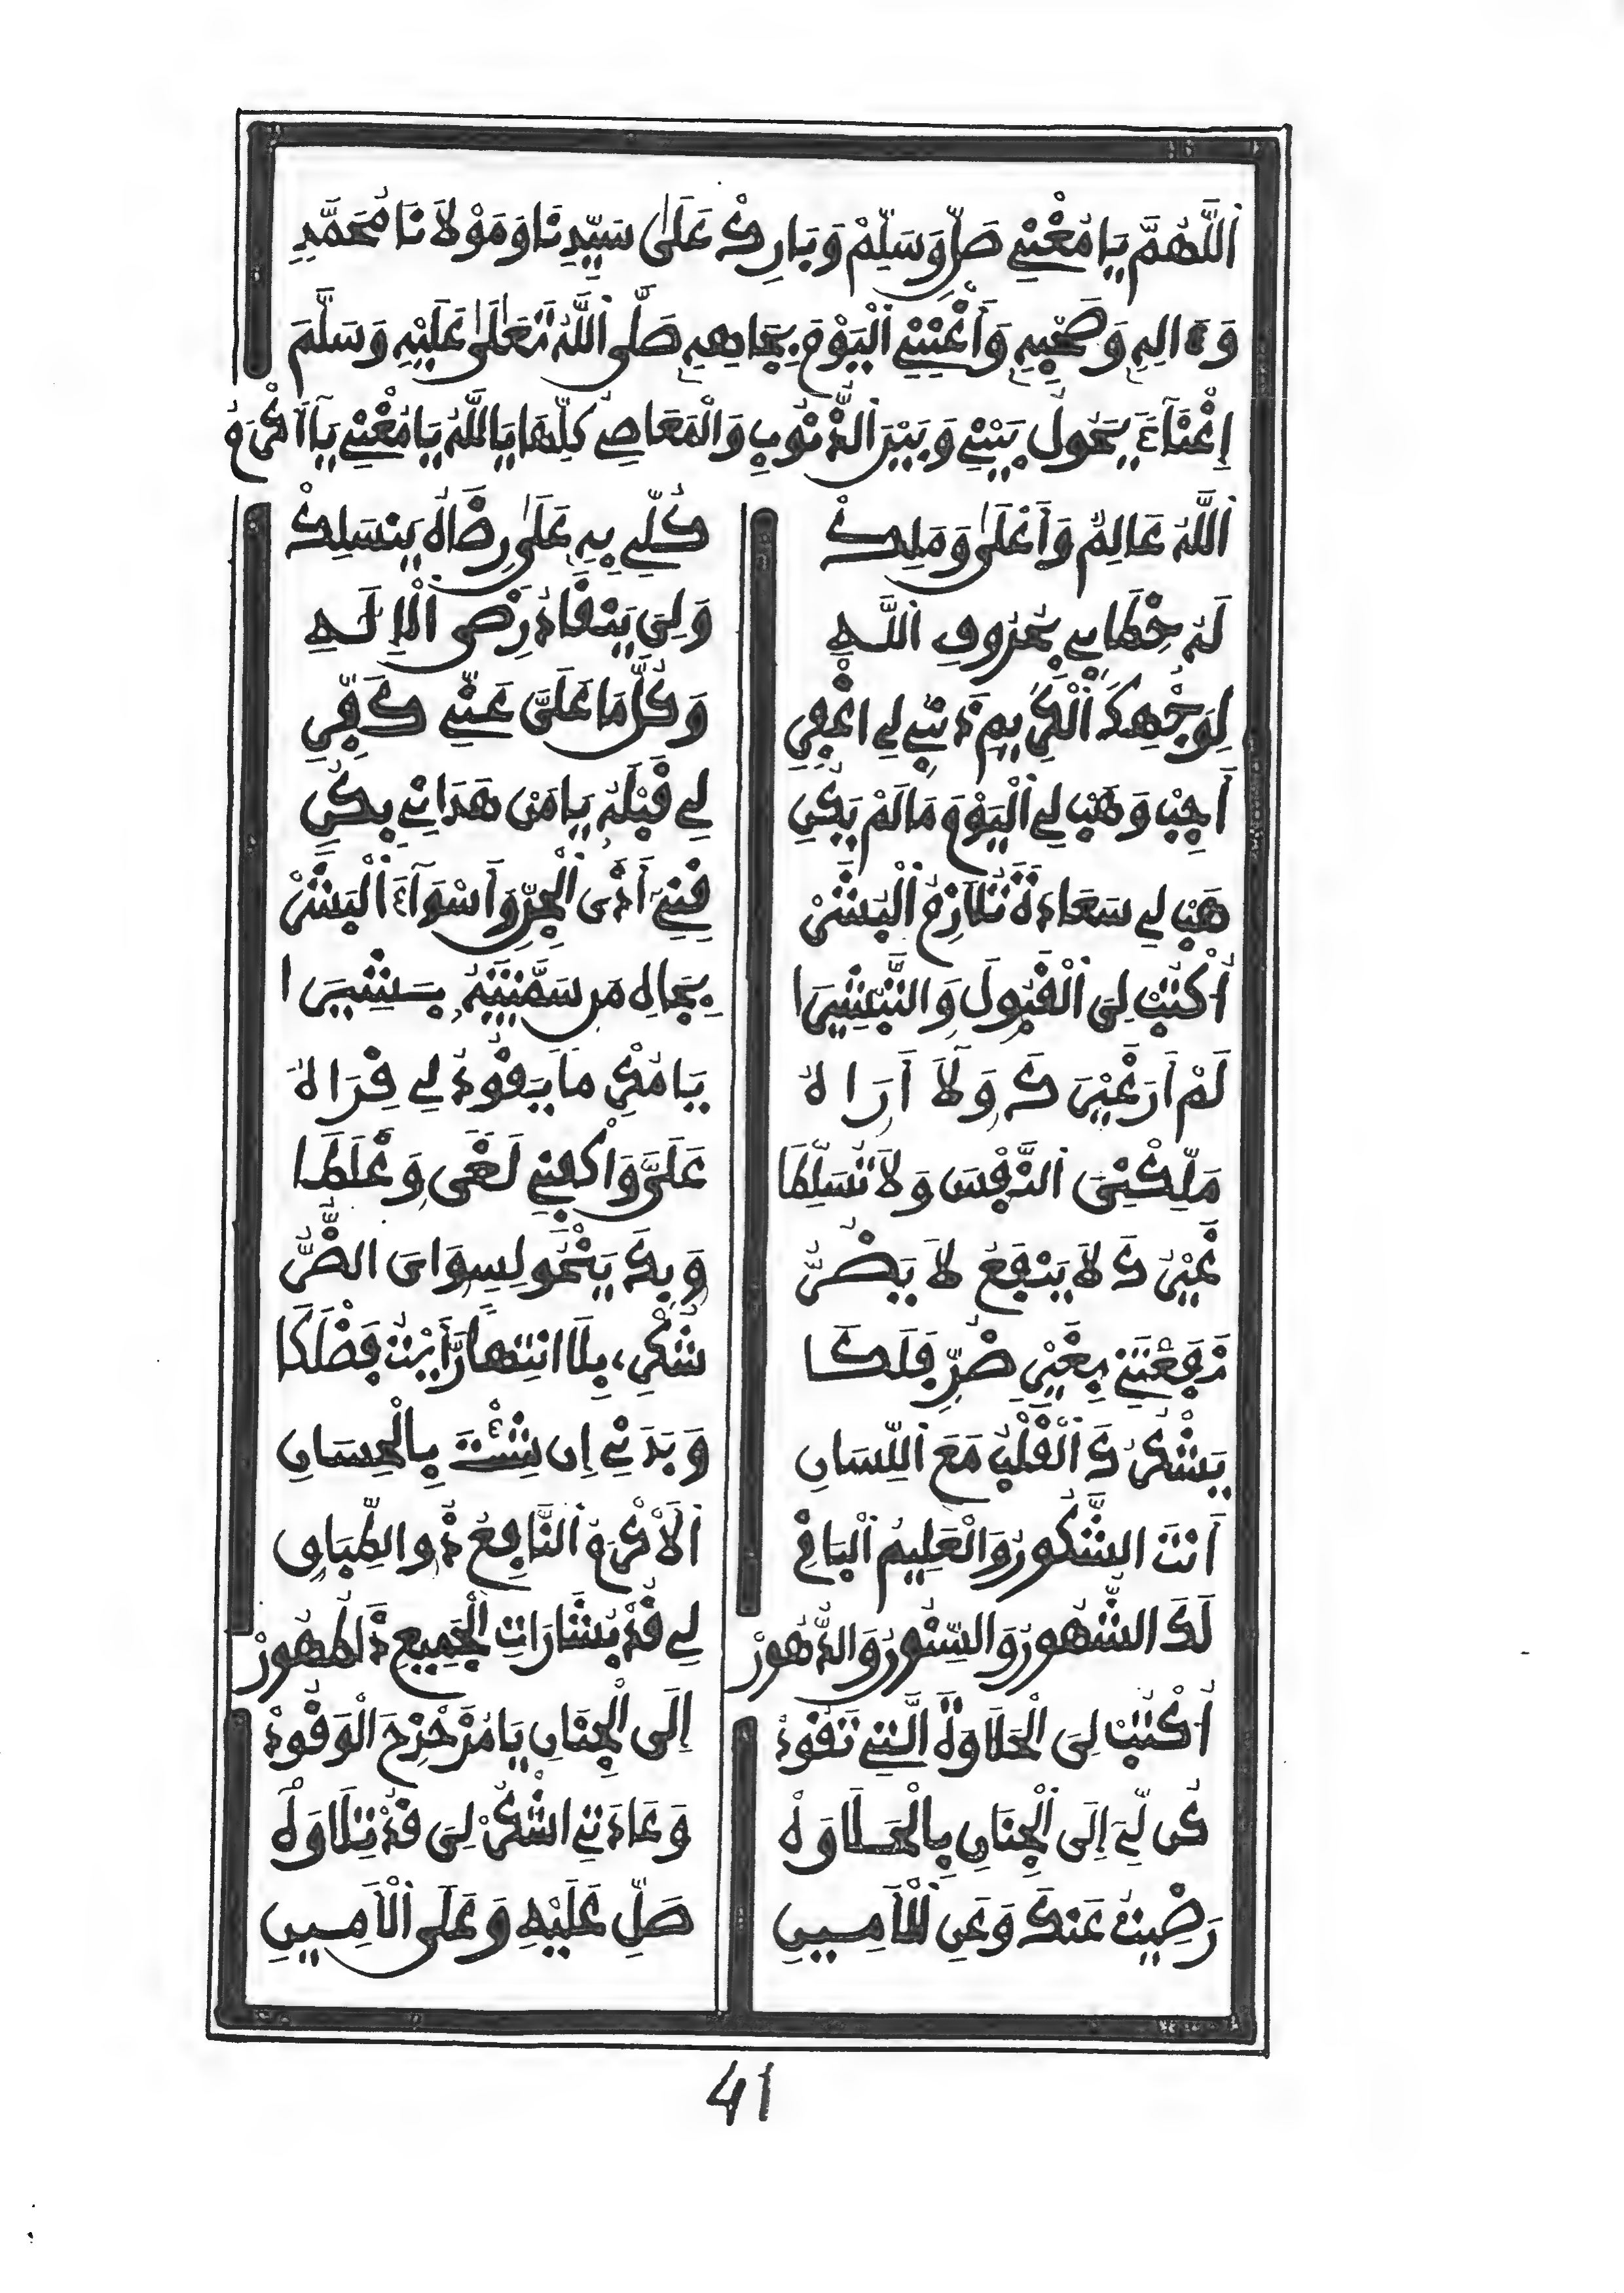 اَللَّهُمَّ يَا مُغْنِي صَلِّ وَسَلِّمْ وَبَارِكْ عَلَىٰ سَيِّدِنَا وَمَوْلَانَا مُحَمَّدِ
وَءَالِهِ وَصَحْبِهِ وَأَغْنِنِي اَلْيَوْمَ بِجَاهِهِ صَلَّى اَللَّهُ تَعَالَىٰ عَلَيْهِ وَسَلَّمَ
إِغْنَآءً يَحُولُ بَيْنِي وَبَيْنَ اَلذُّنُوبِ وَالْمَعَاصِي كُلِّهَا يَا اَللَّهُ يَا مُغْنِي يَا أَكْرَمُ
اَللَّهُ عَالِمٌ وَأَعْلَىٰ وَمَلِكْ كُلِّي بِهِ عَلَىٰ رِضَاهُ يَنسَلِكْ
لَهُ خِطَابِي بِحُرُوفِ اللَّهِ وَلِيَ يَنْقَادُ رِضَى اَلْإِلَهِ
لِوَجْهِكَ اَلْكَرِيمِ ذَنْبِي لِي اغْفِرِ وَكُلَّ مَا عَلَيَّ عَنِّي كَفِّرِ
أَجِبْ وَهَبْ لِي اَلْيَوْمَ مَا لَمْ يَكُنِ لِي قَبْلَهُ يَا مَنْ هَدَانِي بِكُنِ
هَبْ لِي سَعَادَةً تُلَازِمُ اَلْبُشَرْ قِنِي أَذَى اَلْجِنِّ وَأَسْوَآءَ اَلْبَشَرْ
اُكْتُبْ لِيَ اَلْقَبُولَ وَالتَّبْشِيرَا بِجَاهِ مَن سَمَّيْتَهُ بَشِيرَا
لَمْ أَرَ غَيْرَكَ وَلَا أَرَاهُ يَا مُكْرِمًا يَقُودُ لِي قِرَاهُ
مَلِّكْنِيَ اَلنَّفْسَ وَلَا تُسَلِّطَا عَلَيَّ وَاكْفِنِي لَغًى وَغَلَطَا
غَيْرُكَ لَا يَنْفَعُ لَا يَضُرُّ وَبِكَ يَنْحُو لِسِوَايَ الضُّرُّ
نَفَعْتَنِي بِغَيْرِ ضُرٍّ فَلَكَا شُكْرِي بِلَا انْتِهَا رَأَيْتُ فَضْلَكَا
يَشْكُرُكَ اَلْقَلْبُ مَعَ اَللِّسَانِ وَبَدَنِي إِن شِئْتَ بِالْحِسَانِ
أَنْتَ الشَّكُورُ وَالْعَلِيمُ اَلْبَاقِ اَلْأَكْرَمُ اَلنَّافِعُ ذُو الطِّبَاقِ
لَكَ الشُّهُورُ وَالسِّنُورُ وَالدُّهُورْ لِي قُدْ بِشَارَاتِ اَلْجَمِيعِ ذَا طُهُورْ
اُكْتُبْ لِيَ اَلْحَلَاوَةَ الَّتِي تَقُودْ إِلَى اَلْجِنَانِ يَا مُزَحْزِحَ الْوَقُودْ
كُن لِّي إِلَى اَلْجِنَانِ بِالْحَلَاوَهْ وَعَادَتِي اشْكُرْ لِيَ قُدْ تِلَاوَهْ
رَضِيتُ عَنكَ وَعَنِ اَلْأَمِينِ صَلِّ عَلَيْهِ وَعَلَى اَلْأَمِينِ
41